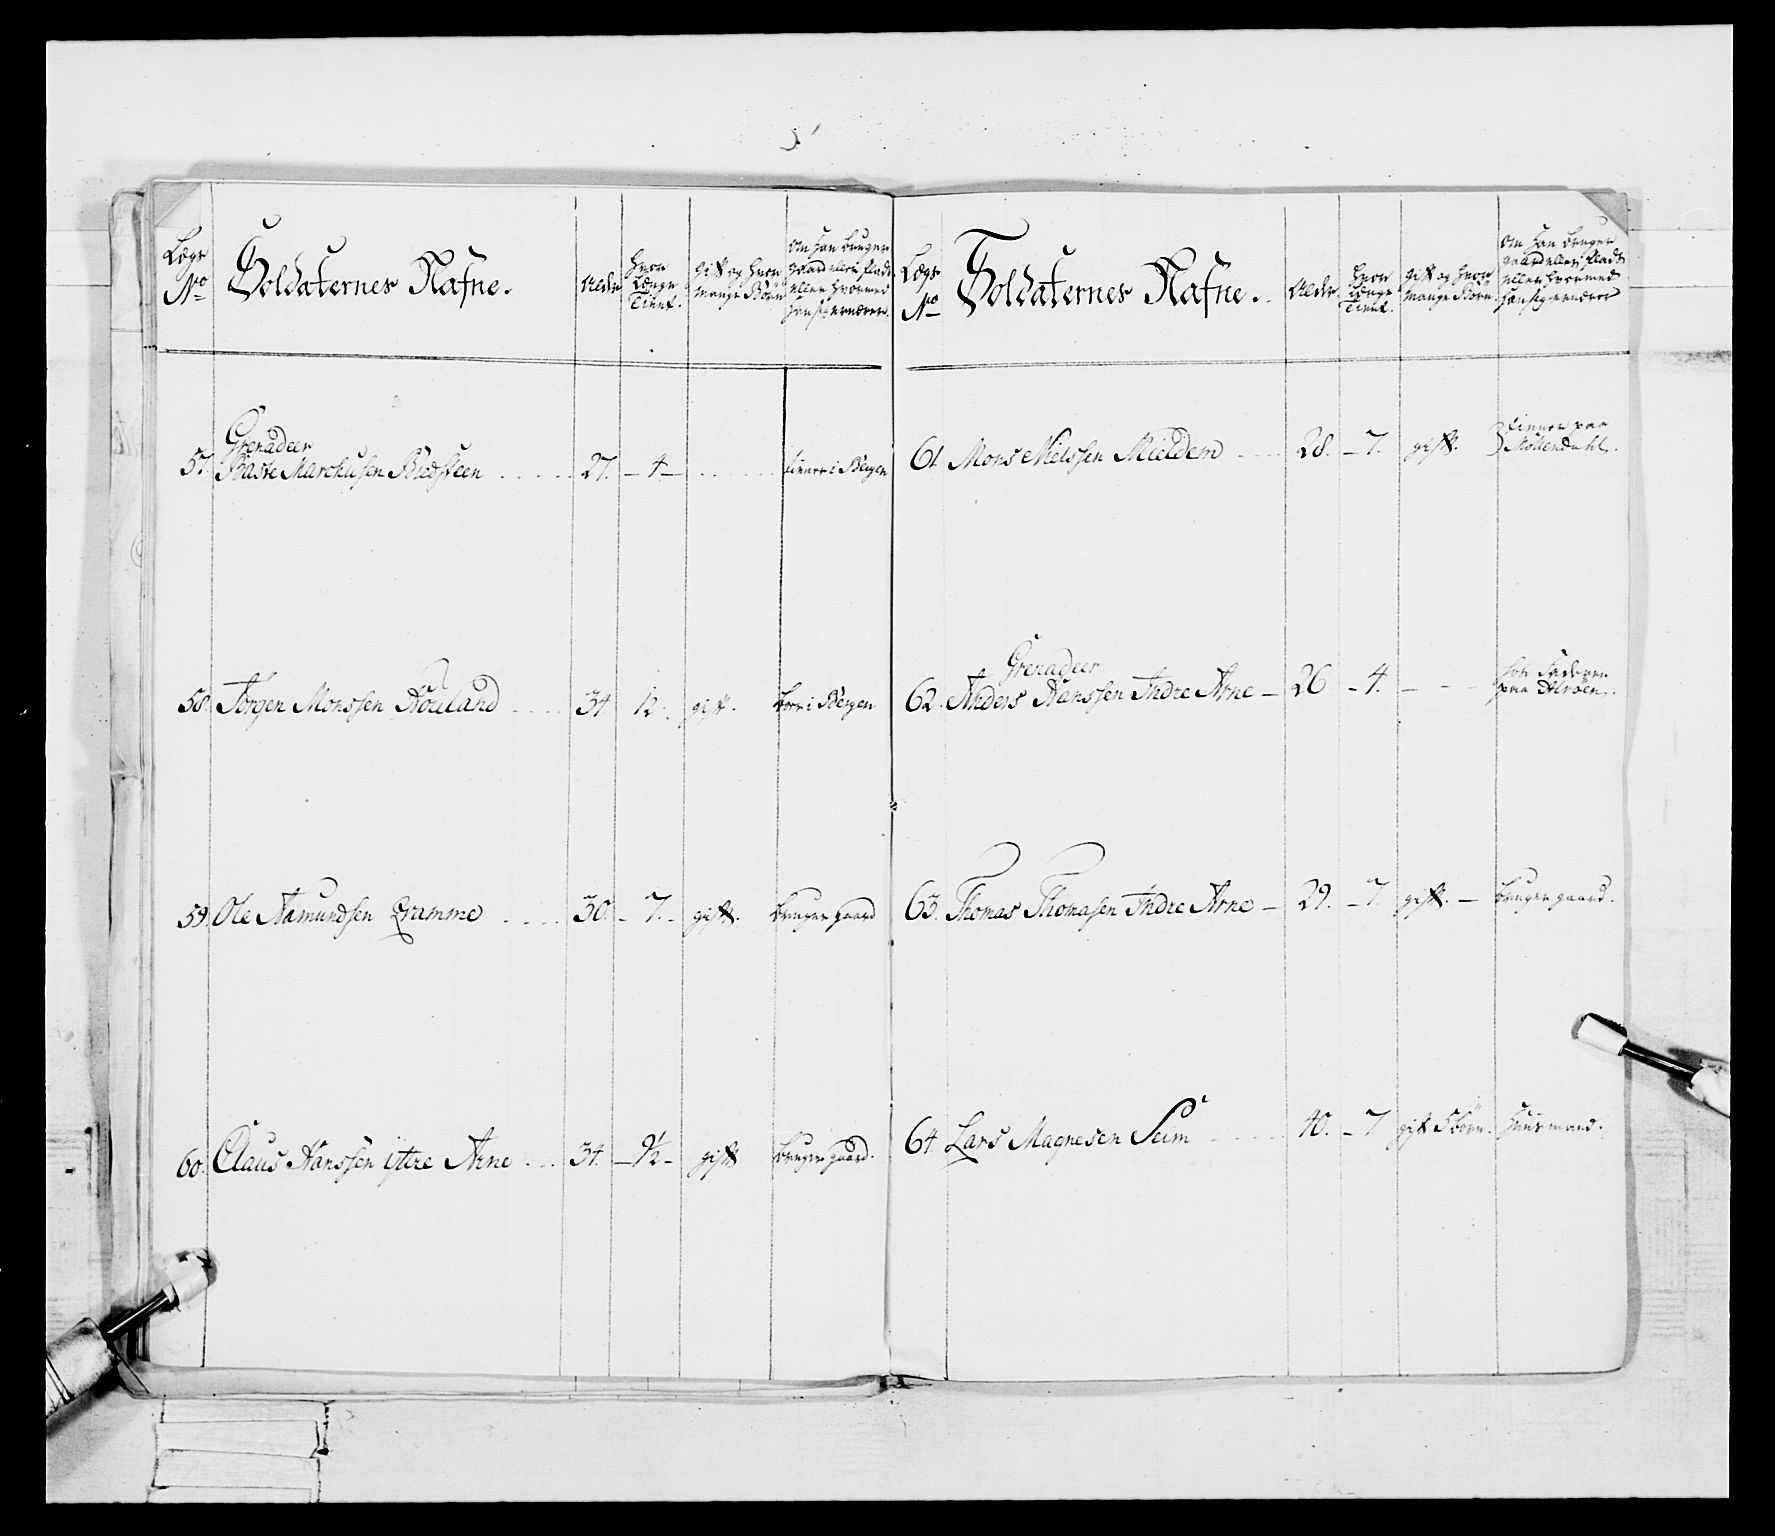 Lægs No
Soldaternes Nafne.
Alder
hvor Længe Tient.
Gift og hvor mange Børn
Om han bruger gaard eller Plads eller hvormed han sig ernærer.
57. Grenadeer
Baste Marchusen Bledsteen 27. 4 tiener i Bergen
58. Jørgen Monssen Houland 34 12. gift. boer i Bergen
59. Ole Aamundsen Gramme 30. 7. gift. bruger gaard
60. Claus Hanssen istre Arne 34. 9½ gift bruger gaard.
Lægs No
Soldaternes Nafne.
Alder.
hvor Længe Tient.
gift og hvor mange Børn.
Om han bruger gaard eller Plads eller hvormed han sig ernærer
61 Mons Nielssen Mieldem 28. 7. gift. tiener paa Møllendahl.
62. Grenadeer
Anders Hanssen Indre Arne 26 4. hos Faderen paa Alrøen.
63. Thomas Thomasen Indre Arne 29. 7. gift. bruger gaard.
64 Lars Magnesen Seim 40. 7 gift 5 børn. Huusmand.